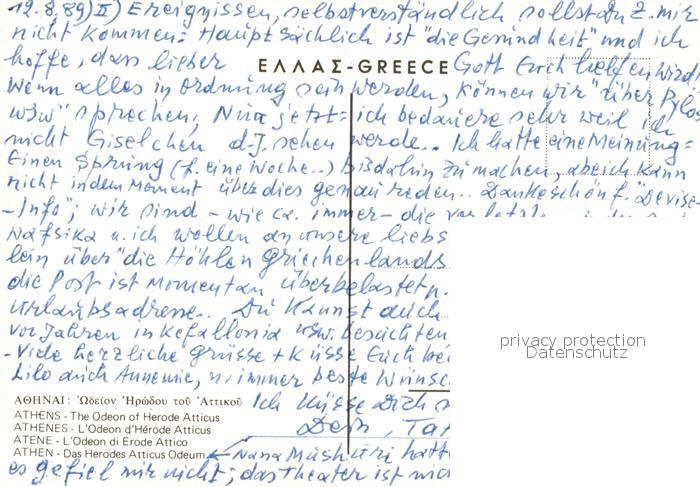 19.8.89) II) Ereignissen, selbstverständlich sollst du z. mir
nicht kommen: Hauptsächlich ist "die Gesundheit" und ich
hoffe, dass lieber Gott Euch helfen wird!
ΕΛΛΑΣ-GREECE
Wenn alles in Ordnung sein werden, können wir "über Pylos
usw" sprechen, Nur jetzt: ich bedauere sehr weil ich
nicht Giselchen d.J. sehen werde.. Ich hatte eine Meinung=
Einen Sprung (f. eine Woche..) bis dahin zu machen, aber ich kann
nicht in dem Moment über dies genau reden.. Dankeschön f. "Devise-
-Info"; wir sind - wie ca. immer - die
Nafsika u. ich wollen an unsere liebs
lein über "die Höhlen Griechenlands
die Post ist momentan überbelastet u.
Urlaubsadresse.. Du kannst auch
vor Jahren in Kefallonia usw. besuchten
- Viele herzliche Grüsse + Küsse Euch bei
Lilo auch Annemie, immer beste Wünsc
privacy protection
Datenschutz
Ich Küsse Dich
Dein,
ΑΘΗΝΑΙ: Ὠδεῖον Ἡρώδου τοῦ Ἀττικοῦ
ATHENS - The Odeon of Herode Atticus
ATHENES - L'Odeon d'Hérode Atticus
ATENE - L'Odeon di Erode Attico
ATHEN - Das Herodes Atticus Odeum
Nana Mushuri hatt
es gefiel mir nicht; das Theater ist